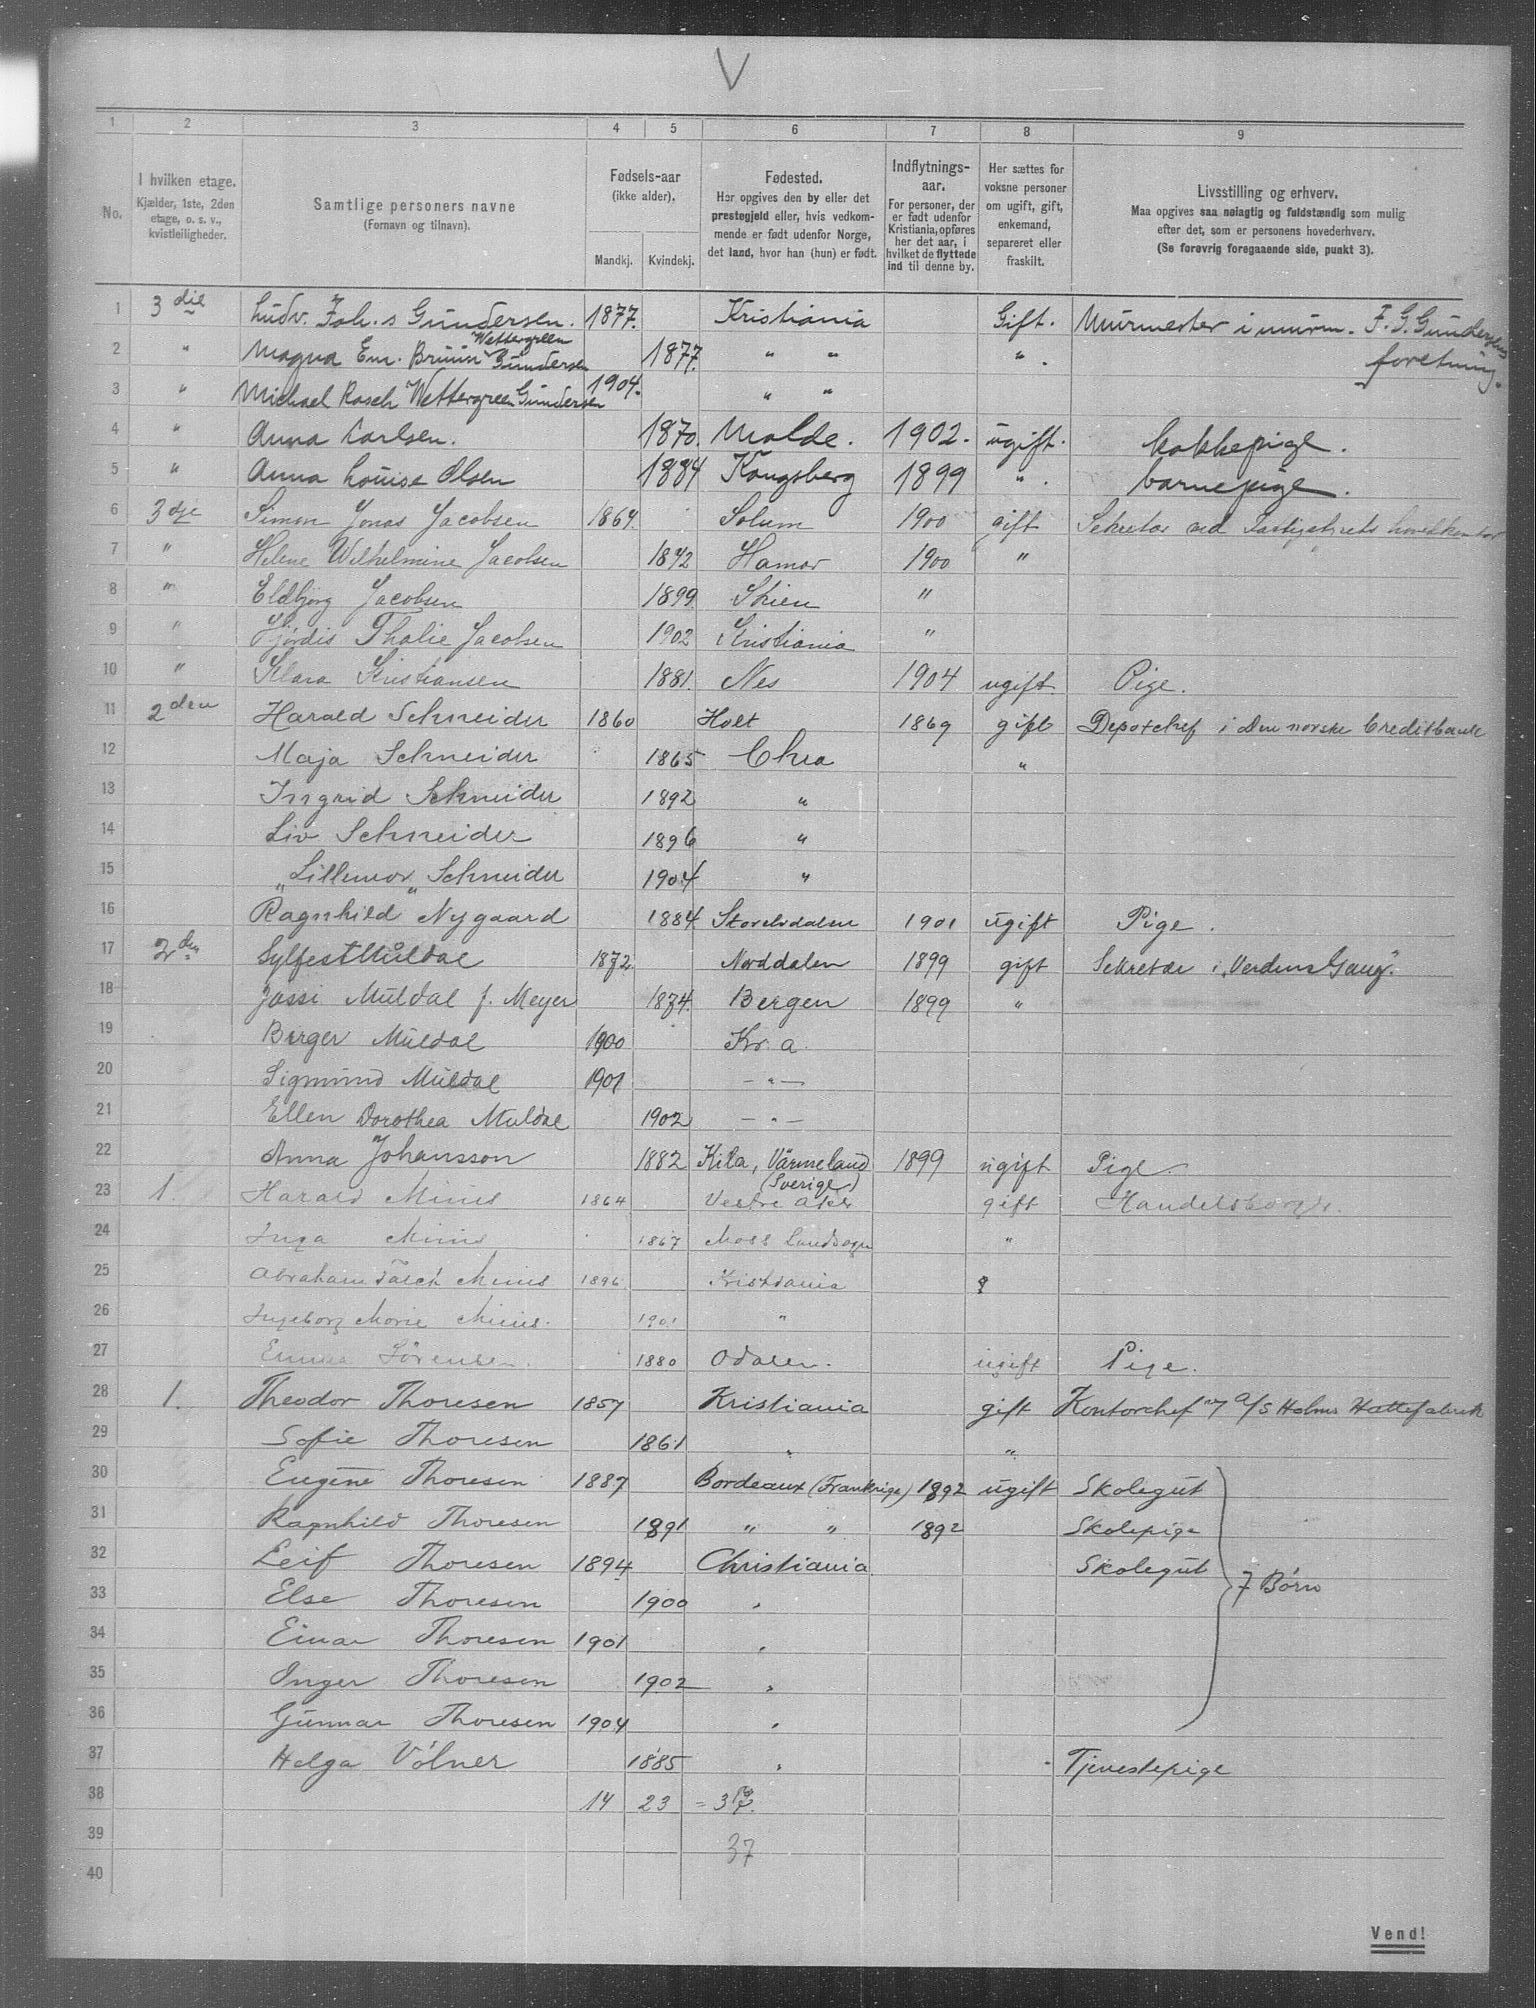 V
1 2 3 4 5 6 7 8 9
No.
I hvilken etage.
Kjælder, 1ste, 2den
etage, o. s. v.,
kvistleiligheder.
Samtlige personers navne
(Fornavn og tilnavn).
Fødsels-aar
(ikke alder).
Mandkj. Kvindekj.
Fødested.
Her opgives den by eller det
prestegjeld eller, hvis vedkom-
mende er født udenfor Norge,
det land, hvor han (hun) er født.
Indflytnings-
aar.
For personer, der
er født udenfor
Kristiania, opføres
her det aar, i
hvilket de flyttede
ind til denne by.
Her sættes for
voksne personer
om ugift, gift,
enkemand,
separeret eller
fraskilt.
Livsstilling og erhverv.
Maa opgives saa nøiagtig og fuldstændig som mulig
efter det, som er personens hovederhverv.
(Se forøvrig foregaaende side, punkt 3).
1 3die Ludv. Joh.s Gundersen. 1877. Kristiania Gift. Murmester i murm. F. G. Gundersens
2 " Magna Em. Bruun Wettergreen Gundersen 1877. " " " . foretning.
3 " Michael Rasch Wettergreen Gundersen 1904. " "
4 " Anna Karlsen. 1870. Molde. 1902. ugift. kokkepige.
5 " Anna Louise Olsen 1884 Kongsberg 1899 " . barnepige.
6 3dje Simon Jonas Jacobsen 1864. Solum 1900 gift Sekretær ved hovedkontor
7 " Helene Wilhelmine Jacobsen 1872 Hamar 1900 "
8 " Eldbjørg Jacobsen 1899 Skien "
9 " Hjørdis Thalie Jacobsen 1902 Kristiania "
10 " Klara Kristiansen 1881. Nes 1904 ugift. Pige.
11 2den Harald Schneider 1860 Holt 1869 gift Depotchef i Den norske Creditbank
12 Maja Schneider 1865 Chra "
13 Ingrid Schneider 1892 "
14 Liv Schneider 1896 "
15 "Lillemor" Schneider 1904 "
16 Ragnhild Nygaard 1884 Storelvdalen 1901 ugift Pige.
17 2den Sylfest Muldal 1872. Norddalen 1899 gift Sekretær i "Verdens Gang".
18 Jossi Muldal f. Meyer 1874. Bergen 1899 "
19 Birger Muldal 1900 Kr. a.
20 Sigmund Muldal 1901 — " —
21 Ellen Dorothea Muldal 1902 — " —
22 Anna Johansson 1882 Kila, Värmeland 1899 ugift Pige
(Sverige)
23 1. Harald 1864 Vestre Aker gift Handelsborger.
24 Inga 1867 Moss Landsogn "
25 Abraham 1896 Kristiania
26 Ingeborg Marie 1901 "
27 Emma Sörensen. 1880 Odalen. ugift Pige.
28 1. Theodor Thoresen 1857 Kristiania gift Kontorchef v/ A/S Holms Hattefabrik
29 Sofie Thoresen 1861 " "
30 Eugène Thoresen 1887 Bordeaux (Frankrige) 1892 ugift Skolegut
31 Ragnhild Thoresen 1891 " " 1892 Skolepige
32 Leif Thoresen 1894 Christiania Skolegut
33 Else Thoresen 1900 " 7 Børn
34 Einar Thoresen 1901 "
35 Inger Thoresen 1902 "
36 Gunnar Thoresen 1904 "
37 Helga Völner 1885 " Tjenestepige
38 14 23 = 37.
39 37
40
Vend!